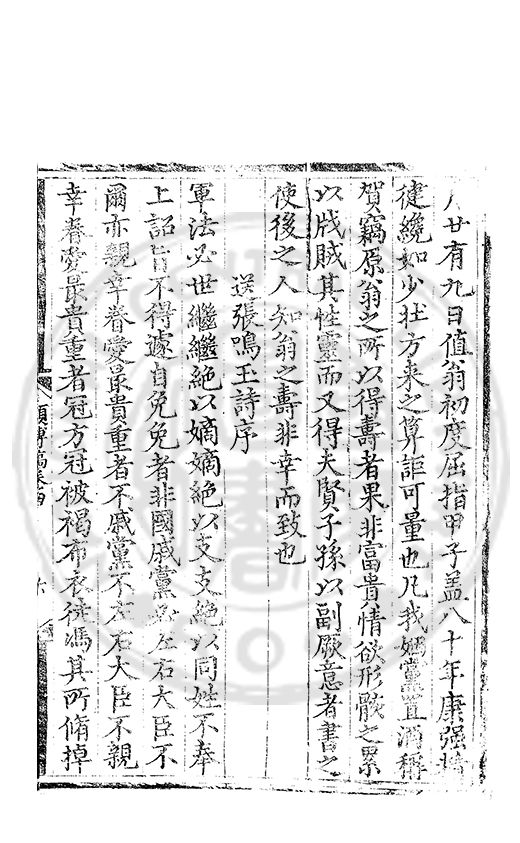 月廿有九日值翁初度屈指甲子盖八十年康强
徤纔如少壮方来之算詎可量也凡我姻黨置酒稱
賀竊原翁之所以得壽者果非富貴情欲形骸之累
以戕賊其性靈而又得夫賢子孫以副厥意者書之
使後之人知翁之壽非幸而致也
送張鳴玉詩序
軍法必世繼繼絶以嫡嫡絶以支支絶以同姓不奉
上詔旨不得遽自免免者非國戚黨必左右大臣不
爾亦親幸眷愛最貴重者不戚黨不左右大臣不親
幸眷愛最貴重者冠方冠被褐布衣徒馮其所脩掉
稿卷四
六